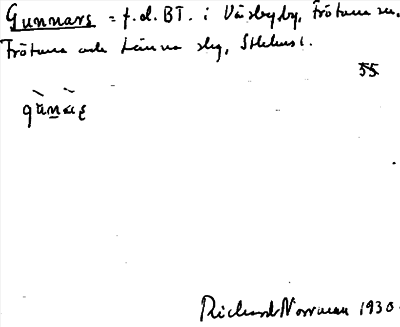 Gunnars = f.d. BT. i Väsby by, Frötuna sn.
Frötuna och Länna slg, Sthlms l.
55
Richard Norrman 1930.